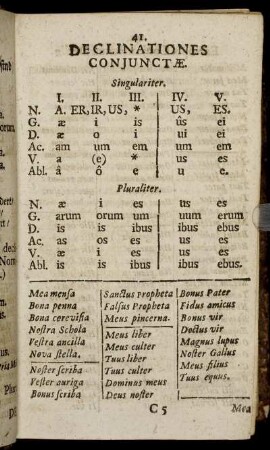 41.
DECLINATIONES
CONJUNCTÆ.
Singulariter.
I. II. III. IV. V.
N. A. ER, IR, US, * US, ES.
G. æ i is ûs ei
D. æ o i ui ei
Ac. am um em um em
V. a (e) * us es
Abl. â ô e u e.
Pluraliter.
N. æ i es us es
G. arum orum um uum erum
D. is is ibus ibus ebus
Ac. as os es us es
V. æ i es us es
Abl. is is ibus ibus ebus.
Mea mensa
Bona penna
Bona cerevisia
Nostra Schola
Vestra ancilla
Nova stella.
Noster scriba
Vester auriga
Bonus scriba
Sanctus Propheta
Falsus Propheta
Meus pincerna.
Meus liber
Meus culter
Tuus liber
Tuus culter
Dominus meus
Deus noster
Bonus Pater
Fidus amicus
Bonus vir
Doctus vir
Magnus lupus
Noster Gallus
Meus filius
Tuus equus.
C 5 Mea